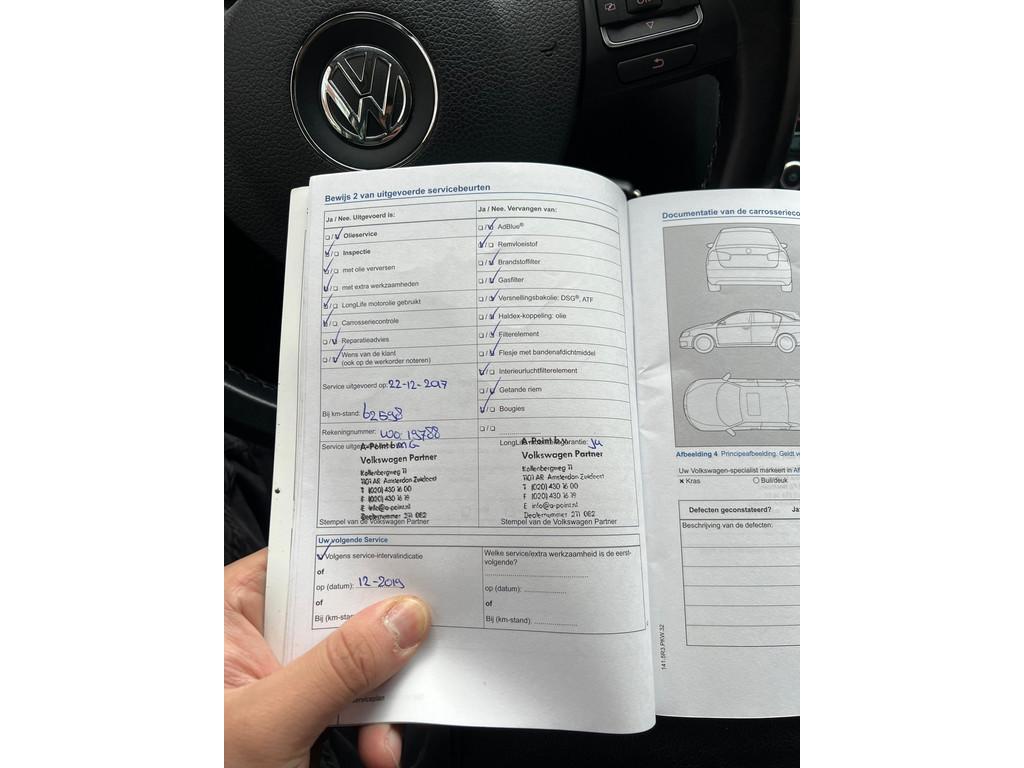 OK
VW
Bewijs 2 van uitgevoerde servicebeurten
Ja / Nee. Uitgevoerd is:
Olieservice
Inspectie
met olie verversen
met extra werkzaamheden
LongLife motorolie gebruikt
Carrosseriecontrole
Reparatieadvies
Wens van de klant
(ook op de werkorder noteren)
Service uitgevoerd op: 22-12-2017
Bij km-stand: 62598
Rekeningnummer: WO 19788
Service uitge
A-Point b.v.
Volkswagen Partner
Kollenbergweg 11
1101 AR Amsterdam Zuidoost
T (020) 430 16 00
F (020) 430 16 19
E info@a-point.nl
Dealernummer 271 082
Stempel van de Volkswagen Partner
Ja / Nee. Vervangen van:
AdBlue®
Remvloeistof
Brandstoffilter
Gasfilter
Versnellingsbakolie: DSG®, ATF
Haldex-koppeling: olie
Filterelement
Flesje met bandenafdichtmiddel
Interieurluchtfilterelement
Getande riem
Bougies
LongLife garantie: Ja
A-Point b.v.
Volkswagen Partner
Kollenbergweg 11
1101 AR Amsterdam Zuidoost
T (020) 430 16 00
F (020) 430 16 19
E info@a-point.nl
Dealernummer 271 082
Stempel van de Volkswagen Partner
Uw volgende Service
Volgens service-intervalindicatie
of
op (datum): 12-2019
of
Bij (km-sta
Welke service/extra werkzaamheid is de eerst-
volgende?
op (datum):
of
Bij (km-stand):
serviceplan
Documentatie van de carrosserieco
Afbeelding 4 Principeafbeelding. Geldt v
Uw Volkswagen-specialist markeert in Af
× Kras
Buil/deuk
Defecten geconstateerd? Ja
Beschrijving van de defecten:
141.5R3.PKW.32